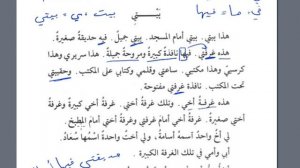 في ، ما = فيها بيت + ي = بيتي
بَيْتِي
هذا بيتي. بيتي أمام المسجد. بيتي جميل. فيه حديقة صغيرة.
هذه غرفتي. فيها نافذة كبيرة ومروحة جميلة. هذا سريري وهذا
كرسيي وهذا مكتبي. ساعتي وقلمي وكتابي على المكتب. وحقيبتي
تحت المكتب. نافذة غرفتي مفتوحة.
هذه غرفة أخي. وتلك غرفة أختي. غرفة أخي كبيرة وغرفة
أختي صغيرة. غرفة أخي أمام غرفتي وغرفة أختي أمام المطبخ.
لي أخ واحد اسمه أسامة. ولي أخت واحدة اسمها سعاد.
أبي وأمي في تلك الغرفة الكبيرة.